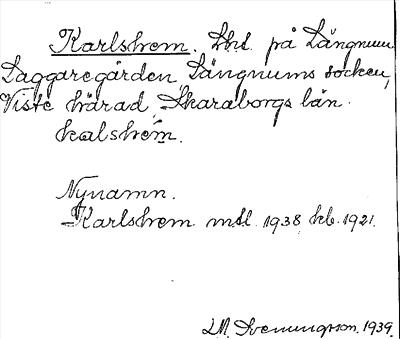 Karlshem. Lht. på Längnum
Daggaregården, Längnums socken,
Viste härad, Skaraborgs län.
kalshem.
Nynamn.
Karlshem mtl. 1938 kb. 1921.
M. Svenungsson. 1939.